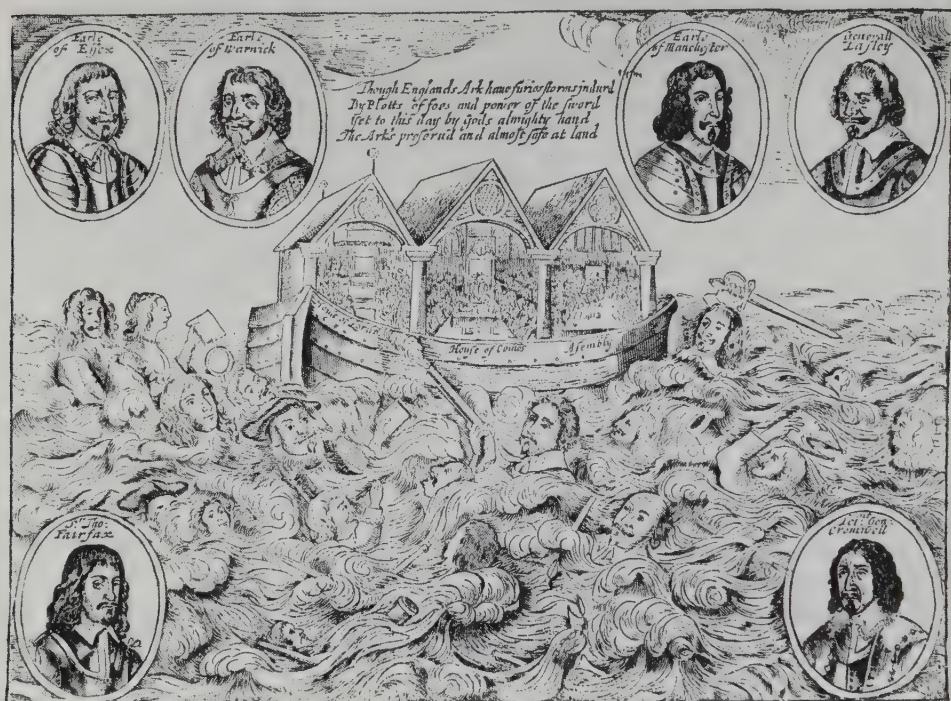 Earle
of Essex
Earle
of Warwick
Though Englands Ark have furios storms indurd
By Plotts of foes and power of the sword
Yet to this day by Gods almighty hand
The Arks preserud and almost safe at land
Earle
of Manchister
Generall
Lasley
House of Comos Asembly
Sr Tho:
Fairfax
Cromwell